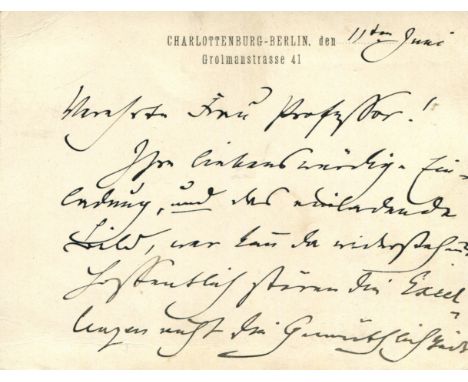 CHARLOTTENBURG-BERLIN, den 11ten Juni
Grolmanstrasse 41
Verehrte Frau Professor!
Ihre liebenswürdige Ein-
ladung, und das einladende
Bild, wer kann da widerstehn
hoffentlich stören die Excel-
lenzen nicht die Gemüthlichkeit